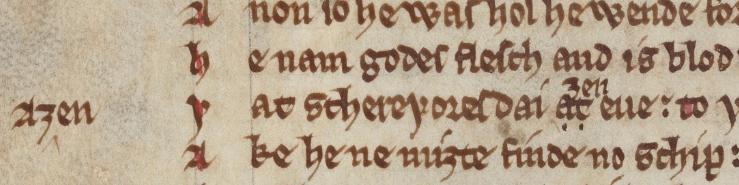 A non so he was hol he wende for
h e nam godes flesch and is blod
aȝen
ȝen
þ at schereþoresdai at eue : to þ
A ke he ne miȝte finde no schip :